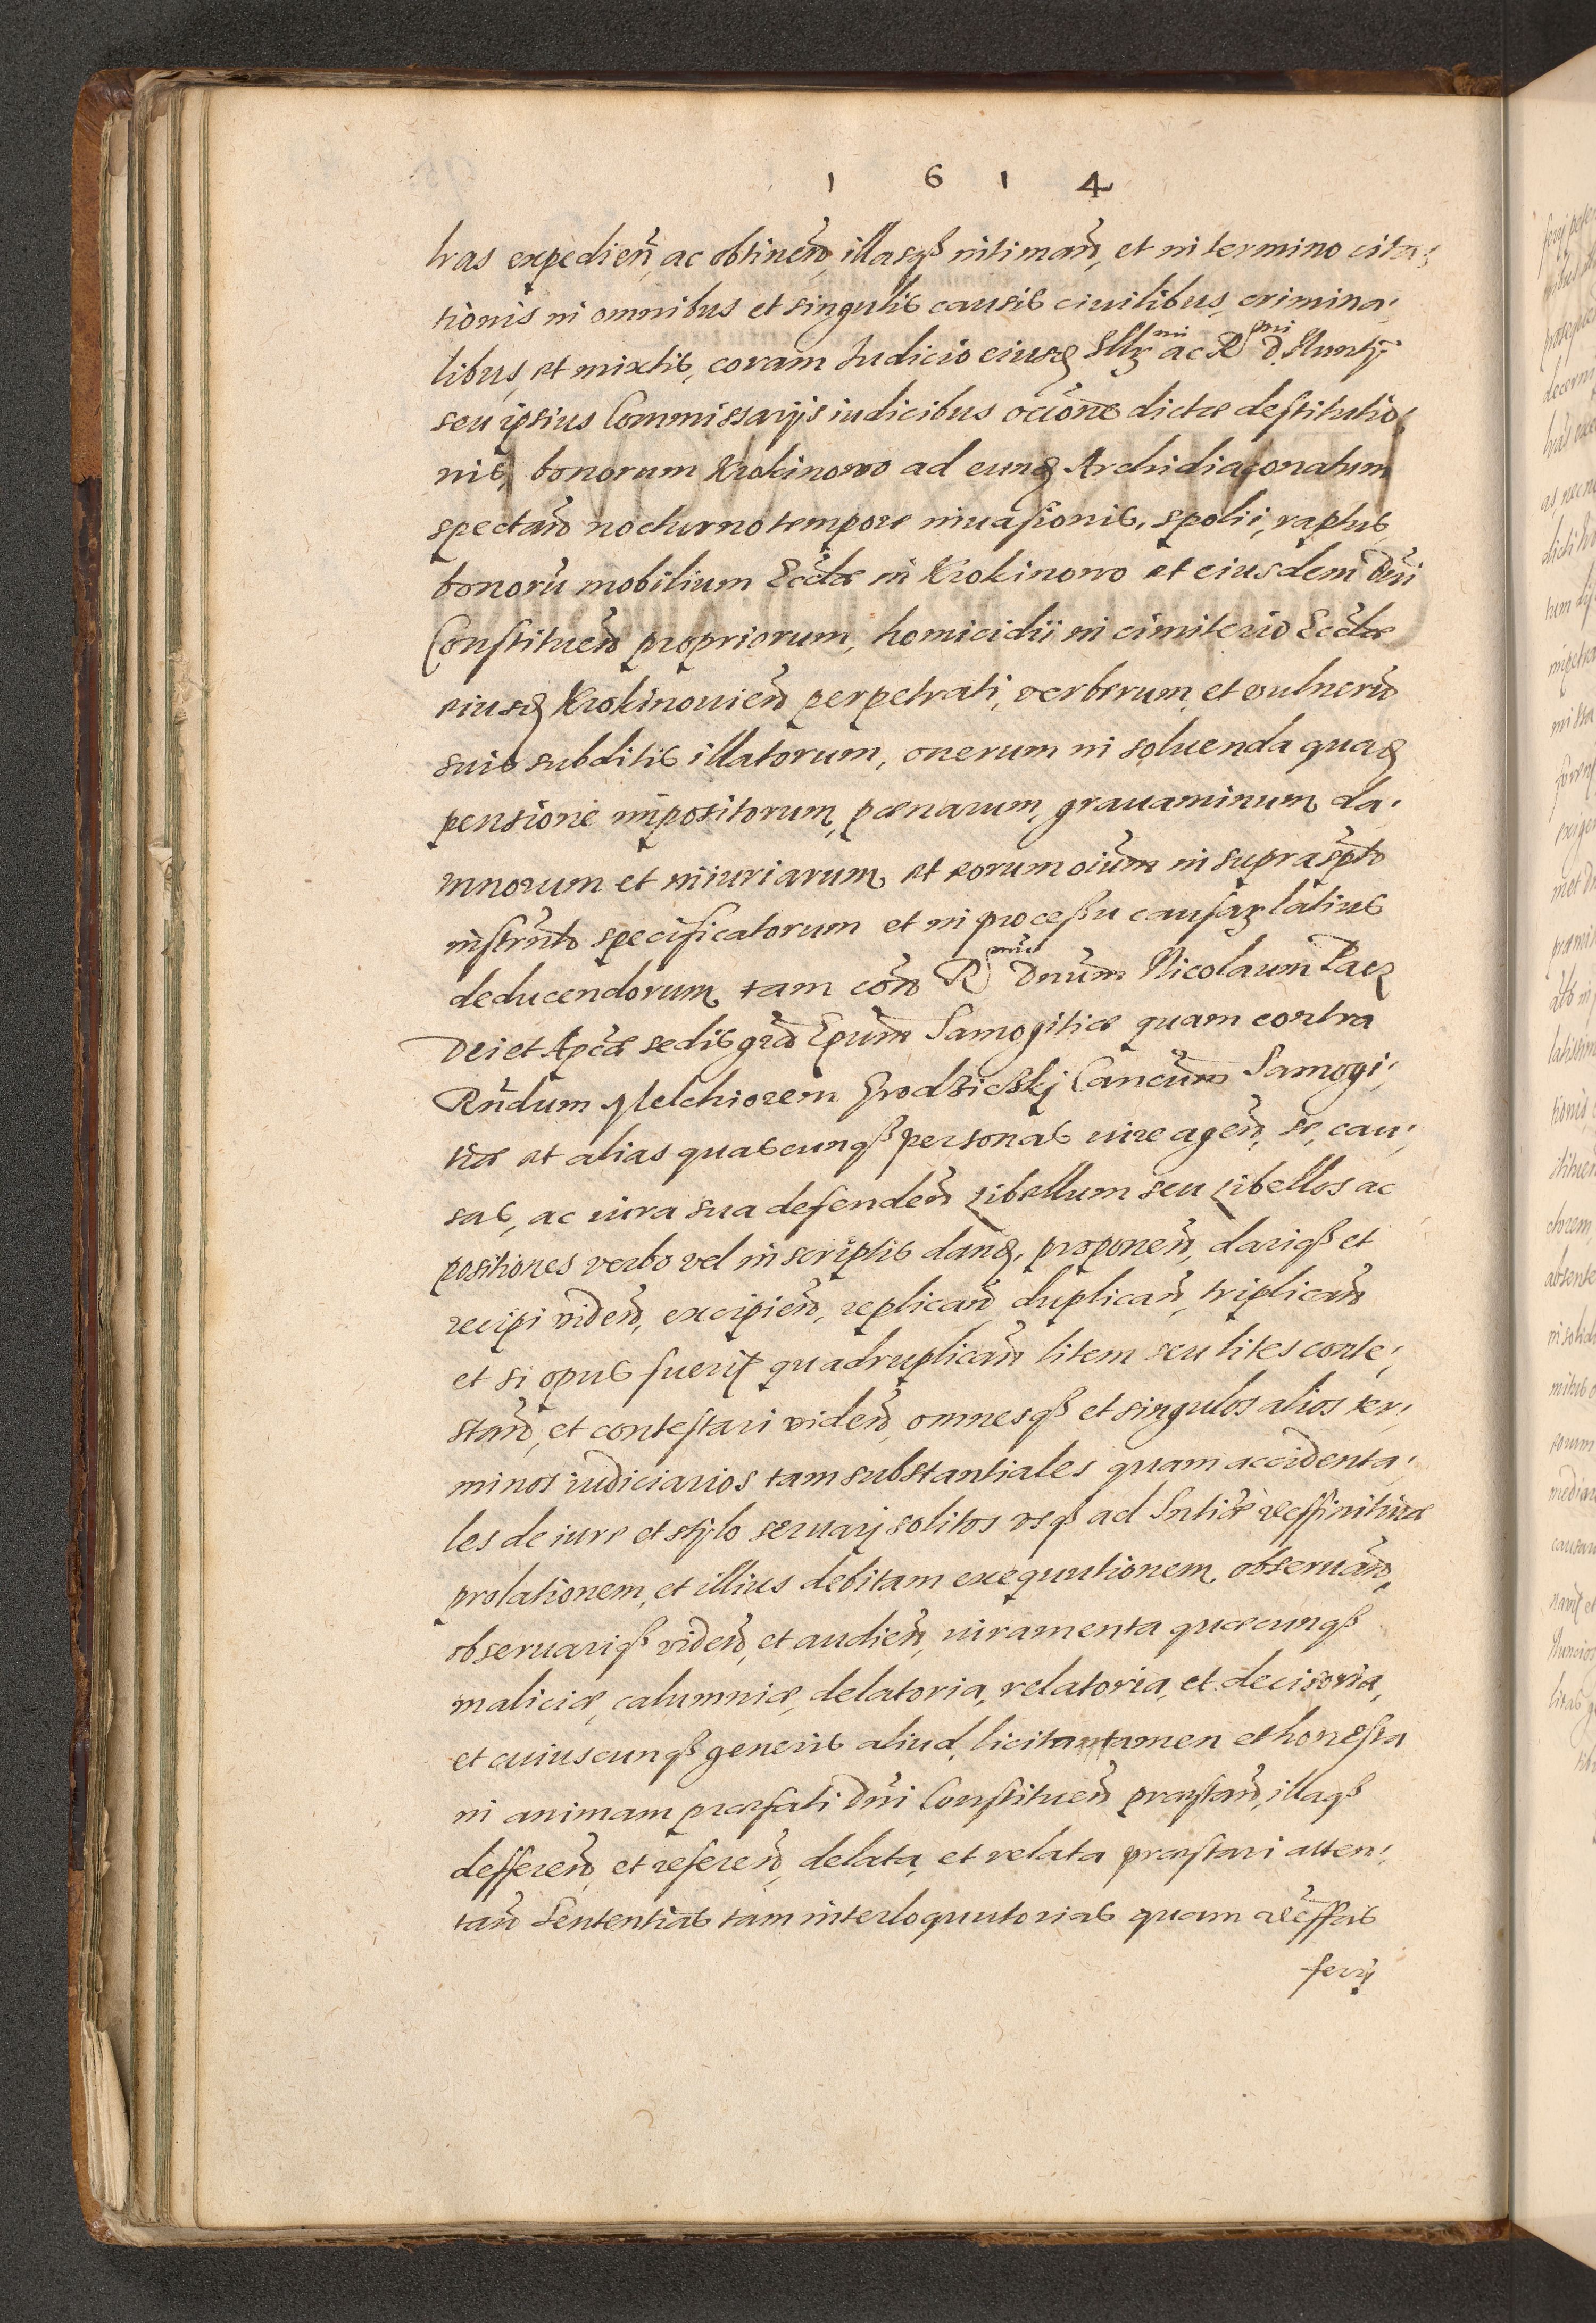 1 6 1 4
lras expedien, ac obtinen, illasq3 intiman, et in termino cita,
tionis in omnibus et singulis causis ciuilibus, crimina,
libus, et mixtis, coram Iudicio eiusd Illmi ac Rmi D. Nuntij
seu ipsius Commissarijs iudicibus ocione dictæ destitutio,
nis, bonorum Krokinowo ad eund Archidiaconatum
spectan nocturno tempore inuasionis, spolii, raptus
bonorū mobilium Ecclæ in Krokinowo et eiusdem Dni
Constituen propriorum, homicidii in cimiterio Eccłæ
eiusd Krokinouien perpetrati, verberum, et vulnerū
suis subditis illatorum, onerum in soluenda quad
pensione impositorum, pœnarum, grauaminum da,
mnorum et iniuriarum et eorum oium in suprascpto
instrnto specificatorum et in processu causaz latius
deducendorum tam con Rmū Dnum Nicolaum Pacz
Dei et Apcæ sedis gra Epum Samogitiæ quam contra
Rndum Melchiorem Grodzicski Cancum Samogi,
tiæ et alias quascunq3 personas iure agen, se, cau,
sas, ac iura sua defenden Libellum seu Libellos ac
positiones verbo vel in scriptis dand, proponen, dariq3 et
recipi viden, excipien, replican, duplican, triplican
et si opus fuerit quadruplican litem seu lites conte,
stan, et contestari viden, omnesq3 et singulos alios ter,
minos iudiciarios tam substantiales quam accidenta,
les de iure et stylo seruari solitos vsq3 ad Sntiæ deffinitiuæ
prolationem, et illius debitam exequutionem obseruan,
obseruariq3 viden, et audien, iuramenta quæcunq3
maliciæ, calumniæ, delatoria, relatoria, et decisoria,
et cuiuscunq3 generis aliud, licita tamen et honesta
in animam præfati Dni Constituen præstan, illaq3
defferen, et referen, delata, et relata præstari atten,
tan Sententias tam interloquutorias quam deffas
ferri